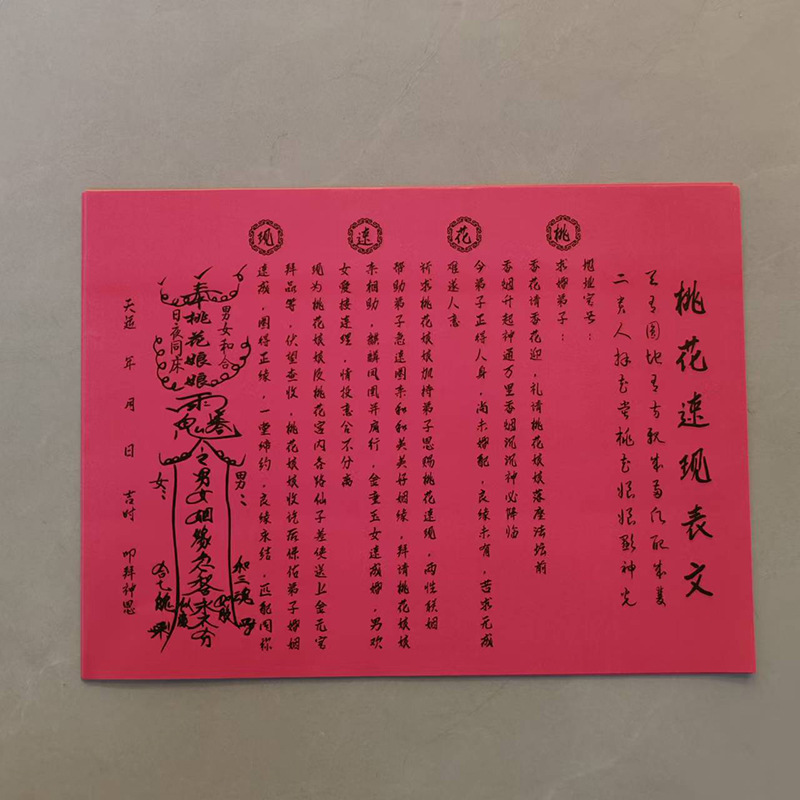 桃花速现表文
天有圆地有方
二
地址宅号：
求婚弟子：
桃花速现
香花请香花迎，礼请桃花娘娘落座法坛前
香烟升起神通万里香烟沉沉神必降临
今弟子正得人身，尚未婚配，良缘未有，苦求无成
难遂人意
祈求桃花娘娘扶持弟子恩赐桃花速现，两性联姻
帮助弟子急速图来和和美美好姻缘，拜请桃花娘娘
来相助，麒麟凤凰并肩行，金童玉女速成婚，男欢
女爱接连理，情投意合不分离
现为桃花娘娘及桃花宫内各路仙子差使送上金元宝
拜品等，伏望查收，桃花娘娘收讫后保佑弟子婚姻
速成，图得正缘，一堂缔约，良缘永结，匹配同称
男女和合
奉桃花娘娘
日夜同床
男
女
天运 年 月 日 吉时 叩拜神恩